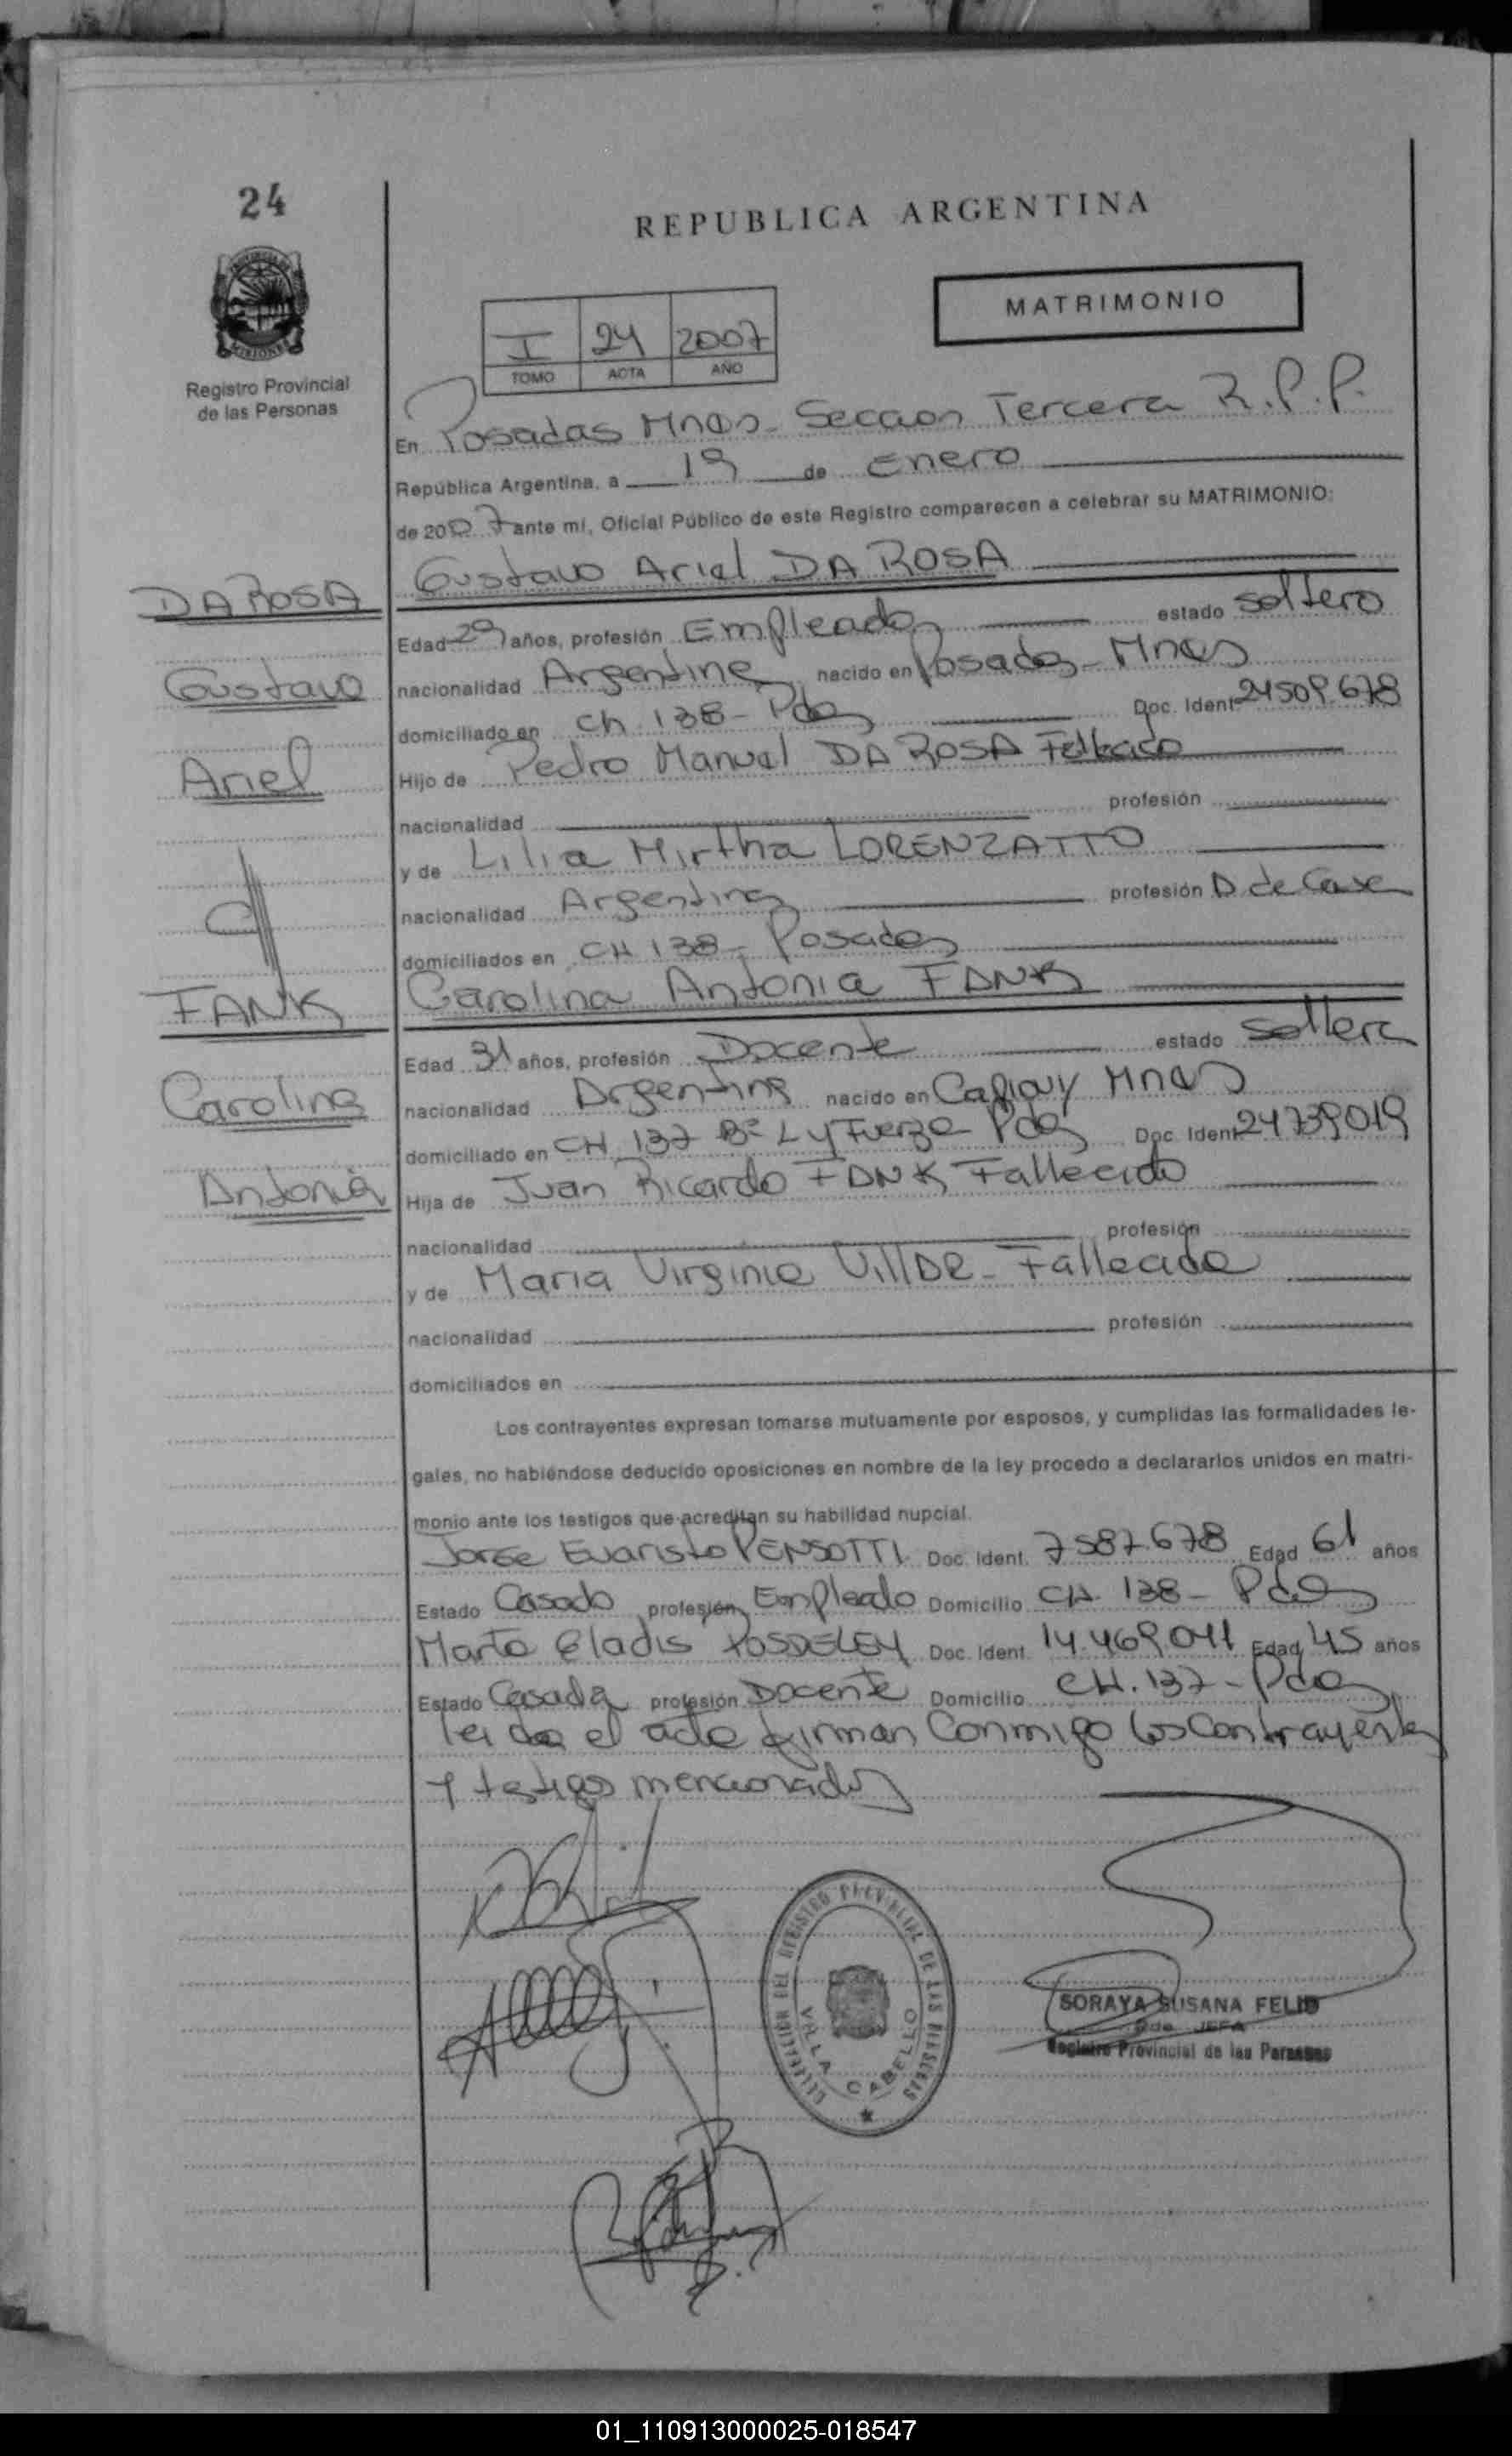 24
REPUBLICA ARGENTINA
MATRIMONIO
PROVINCIA DE MISIONES
Registro Provincial
de las Personas
I 24 2007
TOMO ACTA AÑO
En Posadas Mnes - Seccion Tercera R.P.P.
República Argentina, a 19 de Enero
de 2007 ante mí, Oficial Público de este Registro comparecen a celebrar su MATRIMONIO:
DA ROSA Gustavo Ariel DA ROSA
Edad 29 años, profesión Empleado estado soltero
Gustavo nacionalidad Argentino nacido en Posadas - Mnes
domiciliado en Ch 138 - Pdas Doc. Ident 24509678
Ariel Hijo de Pedro Manuel DA ROSA Fallecido
nacionalidad profesión
y de Lilia Mirtha LORENZATTO
c/ nacionalidad Argentina profesión A. de Casa
domiciliados en CH 138 - Posadas
FANK Carolina Antonia FANK
Edad 31 años, profesión Docente estado soltera
Carolina nacionalidad Argentina nacido en Mnes
domiciliado en CH 137 Bº L y Fuerza - Pdas Doc. Ident 24739019
Antonia Hija de Juan Ricardo FANK Fallecido
nacionalidad profesión
y de Maria Virginia - Fallecida
nacionalidad profesión
domiciliados en
Los contrayentes expresan tomarse mutuamente por esposos, y cumplidas las formalidades le-
gales, no habiéndose deducido oposiciones en nombre de la ley procedo a declararlos unidos en matri-
monio ante los testigos que acreditan su habilidad nupcial.
Jorge Evaristo PENSOTTI Doc. Ident. 7587.678 Edad 61 años
Estado Casado profesión Empleado Domicilio CH. 138 - Pdas
Marta Gladis Doc. Ident. 14.469.041 Edad 45 años
Estado Casada profesión Docente Domicilio CH. 137 - Pdas
leida el acta firman Conmigo los Contrayentes
y testigos mencionados
DELEGACION DEL REGISTRO PROVINCIAL DE LAS PERSONAS
VILLA CABELLO
SORAYA SUSANA FELIP
JEFA
Registro Provincial de las Personas
01_110913000025-018547